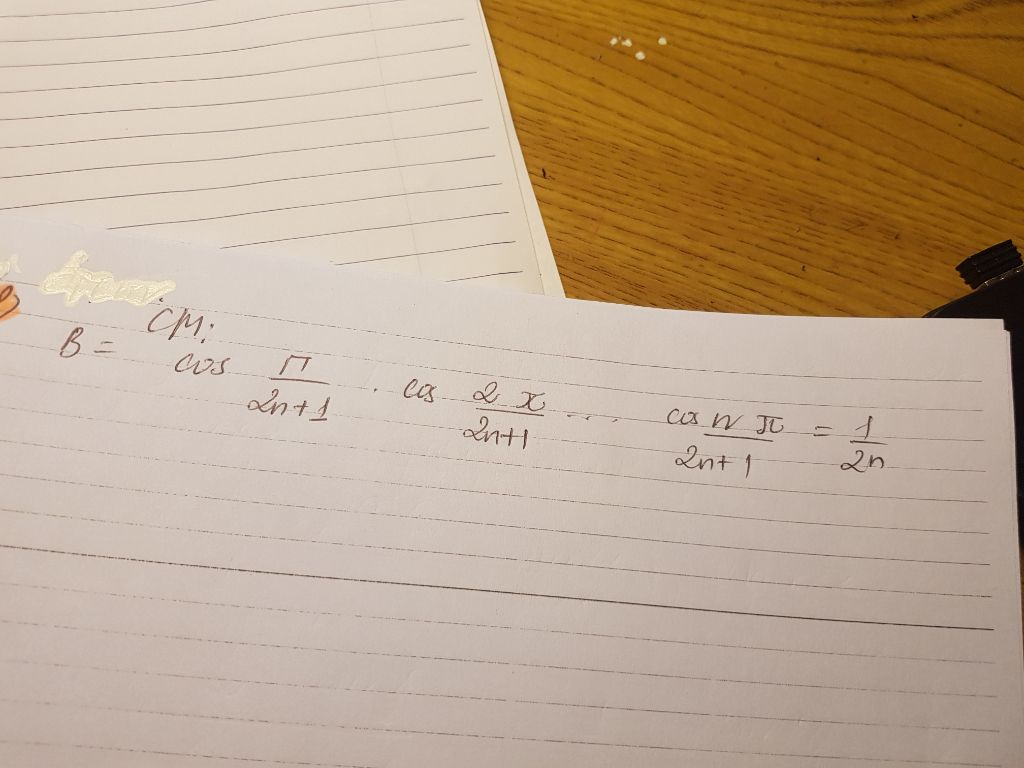 CM:
B = cos π/2n+1 . cos 2π/2n+1 ... cos nπ/2n+1 = 1/2n